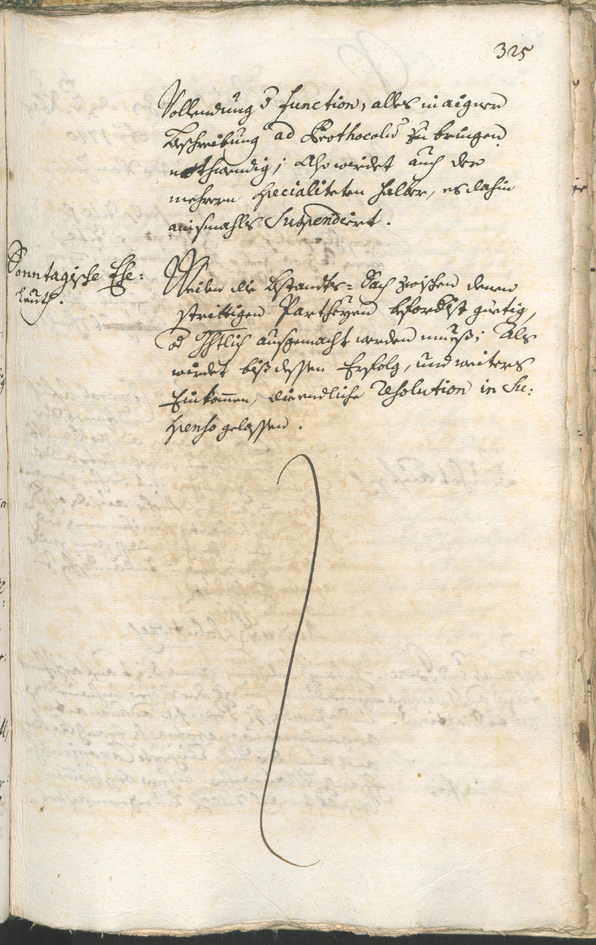 325
Vollendung d function, alles in aigner
Beschreibung ad Prothocolū zu bringen
nothwendig; Also wirdet auch der
mehrern specialiteten halber, es dahin
annhmahls suspendiert.
Sonntagische Ehe:
leuth.
Weilen die Bstandts-Sach zwischen denen
strittigen Partheyen bevordist güettig,
d gstlich ausgemacht werden mueß; Als
wirdet biß dessen Erfolg, und weiters
Einkommen, die endliche Resolution in Su:
spenso gelassen.